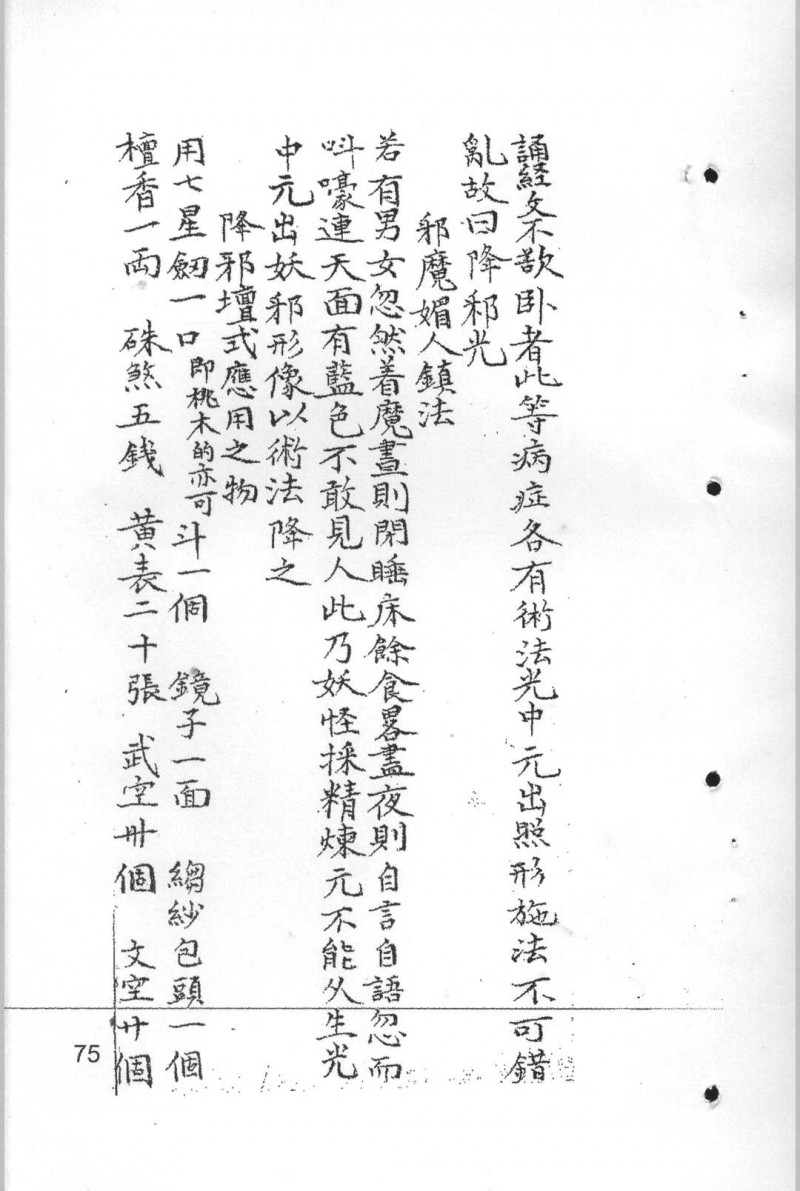 誦経文不歆卧者此等病症各有術法光中元出照形施法不可錯
亂故曰降邪光
邪魔媚人鎮法
若有男女忽然着魔晝則閉睡床餘食畧盡夜則自言自語忽而
呌嚎連天面有藍色不敢見人此乃妖怪採精煉元不能久生光
中元出妖邪形像以術法降之
降邪壇式應用之物
用七星劒一口即桃木的亦可斗一個 鏡子一面 縐紗包頭一個
檀香一両 硃煞五銭 黃表二十張 武空卅個 文空廿個
75